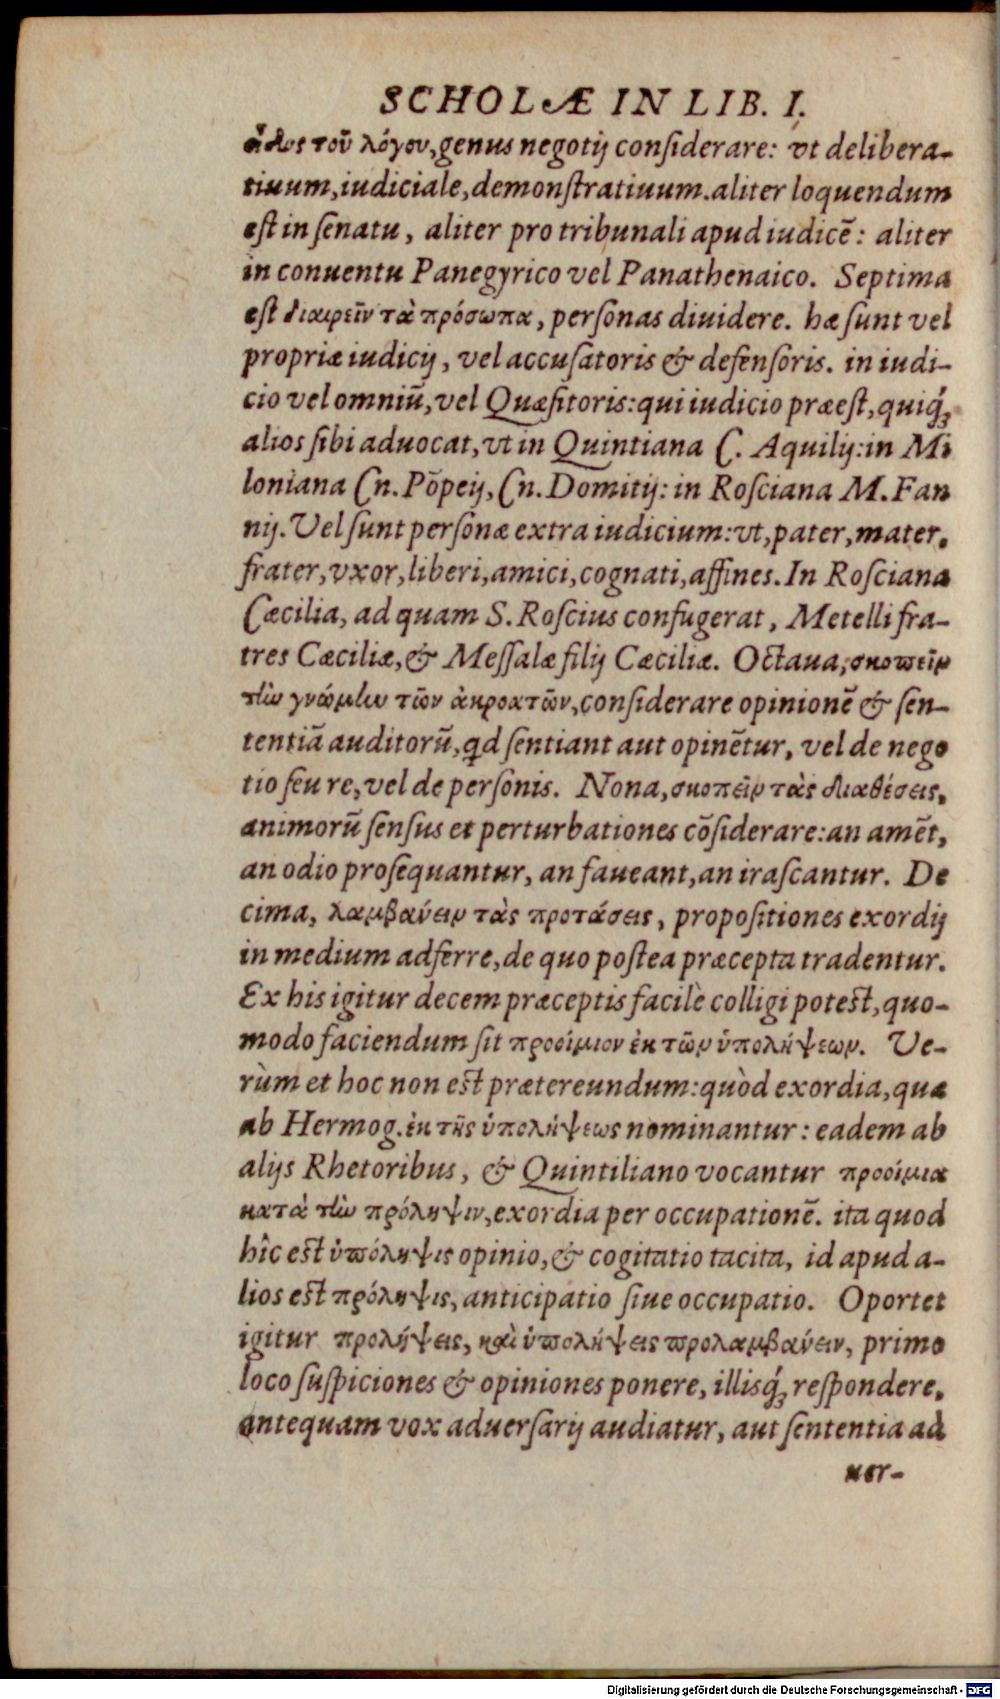 SCHOLÆ IN LIB. I.
εἶδος τοῦ λόγου, genus negotij conſiderare: vt delibera-
tiuum, iudiciale, demonſtratiuum. aliter loquendum
eſt in ſenatu, aliter pro tribunali apud iudicẽ: aliter
in conuentu Panegyrico vel Panathenaico. Septima
eſt διαιρεῖν τὰ πρόσωπα, perſonas diuidere. hæ ſunt vel
propriæ iudicij, vel accuſatoris & defenſoris. in iudi-
cio vel omniũ, vel Quæſitoris: qui iudicio præeſt, quiq́;
alios ſibi aduocat, vt in Quintiana C. Aquilij: in Mi
loniana Cn. Põpeij, Cn. Domitij: in Roſciana M. Fan
nij. Vel ſunt perſonæ extra iudicium: vt, pater, mater,
frater, vxor, liberi, amici, cognati, affines. In Roſciana
Cæcilia, ad quam S. Roſcius confugerat, Metelli fra-
tres Cæciliæ, & Meſſalæ filij Cæciliæ. Octaua, σκοπεῖν
τὴν γνώμην τῶν ἀκροατῶν, conſiderare opinionẽ & ſen-
tentiã auditorũ, qd ſentiant aut opinẽtur, vel de nego
tio ſeu re, vel de perſonis. Nona, σκοπεῖν τὰς διαθέσεις,
animorũ ſenſus et perturbationes cõſiderare: an amẽt,
an odio proſequantur, an faueant, an iraſcantur. De
cima, λαμβάνειν τὰς προτάσεις, propoſitiones exordij
in medium adferre, de quo poſtea præcepta tradentur.
Ex his igitur decem præceptis facilè colligi poteſt, quo-
modo faciendum ſit προοίμιον ἐκ τῶν ὑπολήψεων. Ve-
rùm et hoc non eſt prætereundum: quòd exordia, quæ
ab Hermog. ἐκ τῆς ὑπολήψεως nominantur: eadem ab
alijs Rhetoribus, & Quintiliano vocantur προοίμια
κατὰ τὴν πρόληψιν, exordia per occupationẽ. ita quod
hîc eſt ὑπόληψις opinio, & cogitatio tacita, id apud a-
lios eſt πρόληψις, anticipatio ſiue occupatio. Oportet
igitur προλήψεις, καὶ ὑπολήψεις προλαμβάνειν, primo
loco ſuſpiciones & opiniones ponere, illisq́; reſpondere,
antequam vox aduerſarij audiatur, aut ſententia ad
uer-
Digitalisierung gefördert durch die Deutsche Forschungsgemeinschaft - DFG